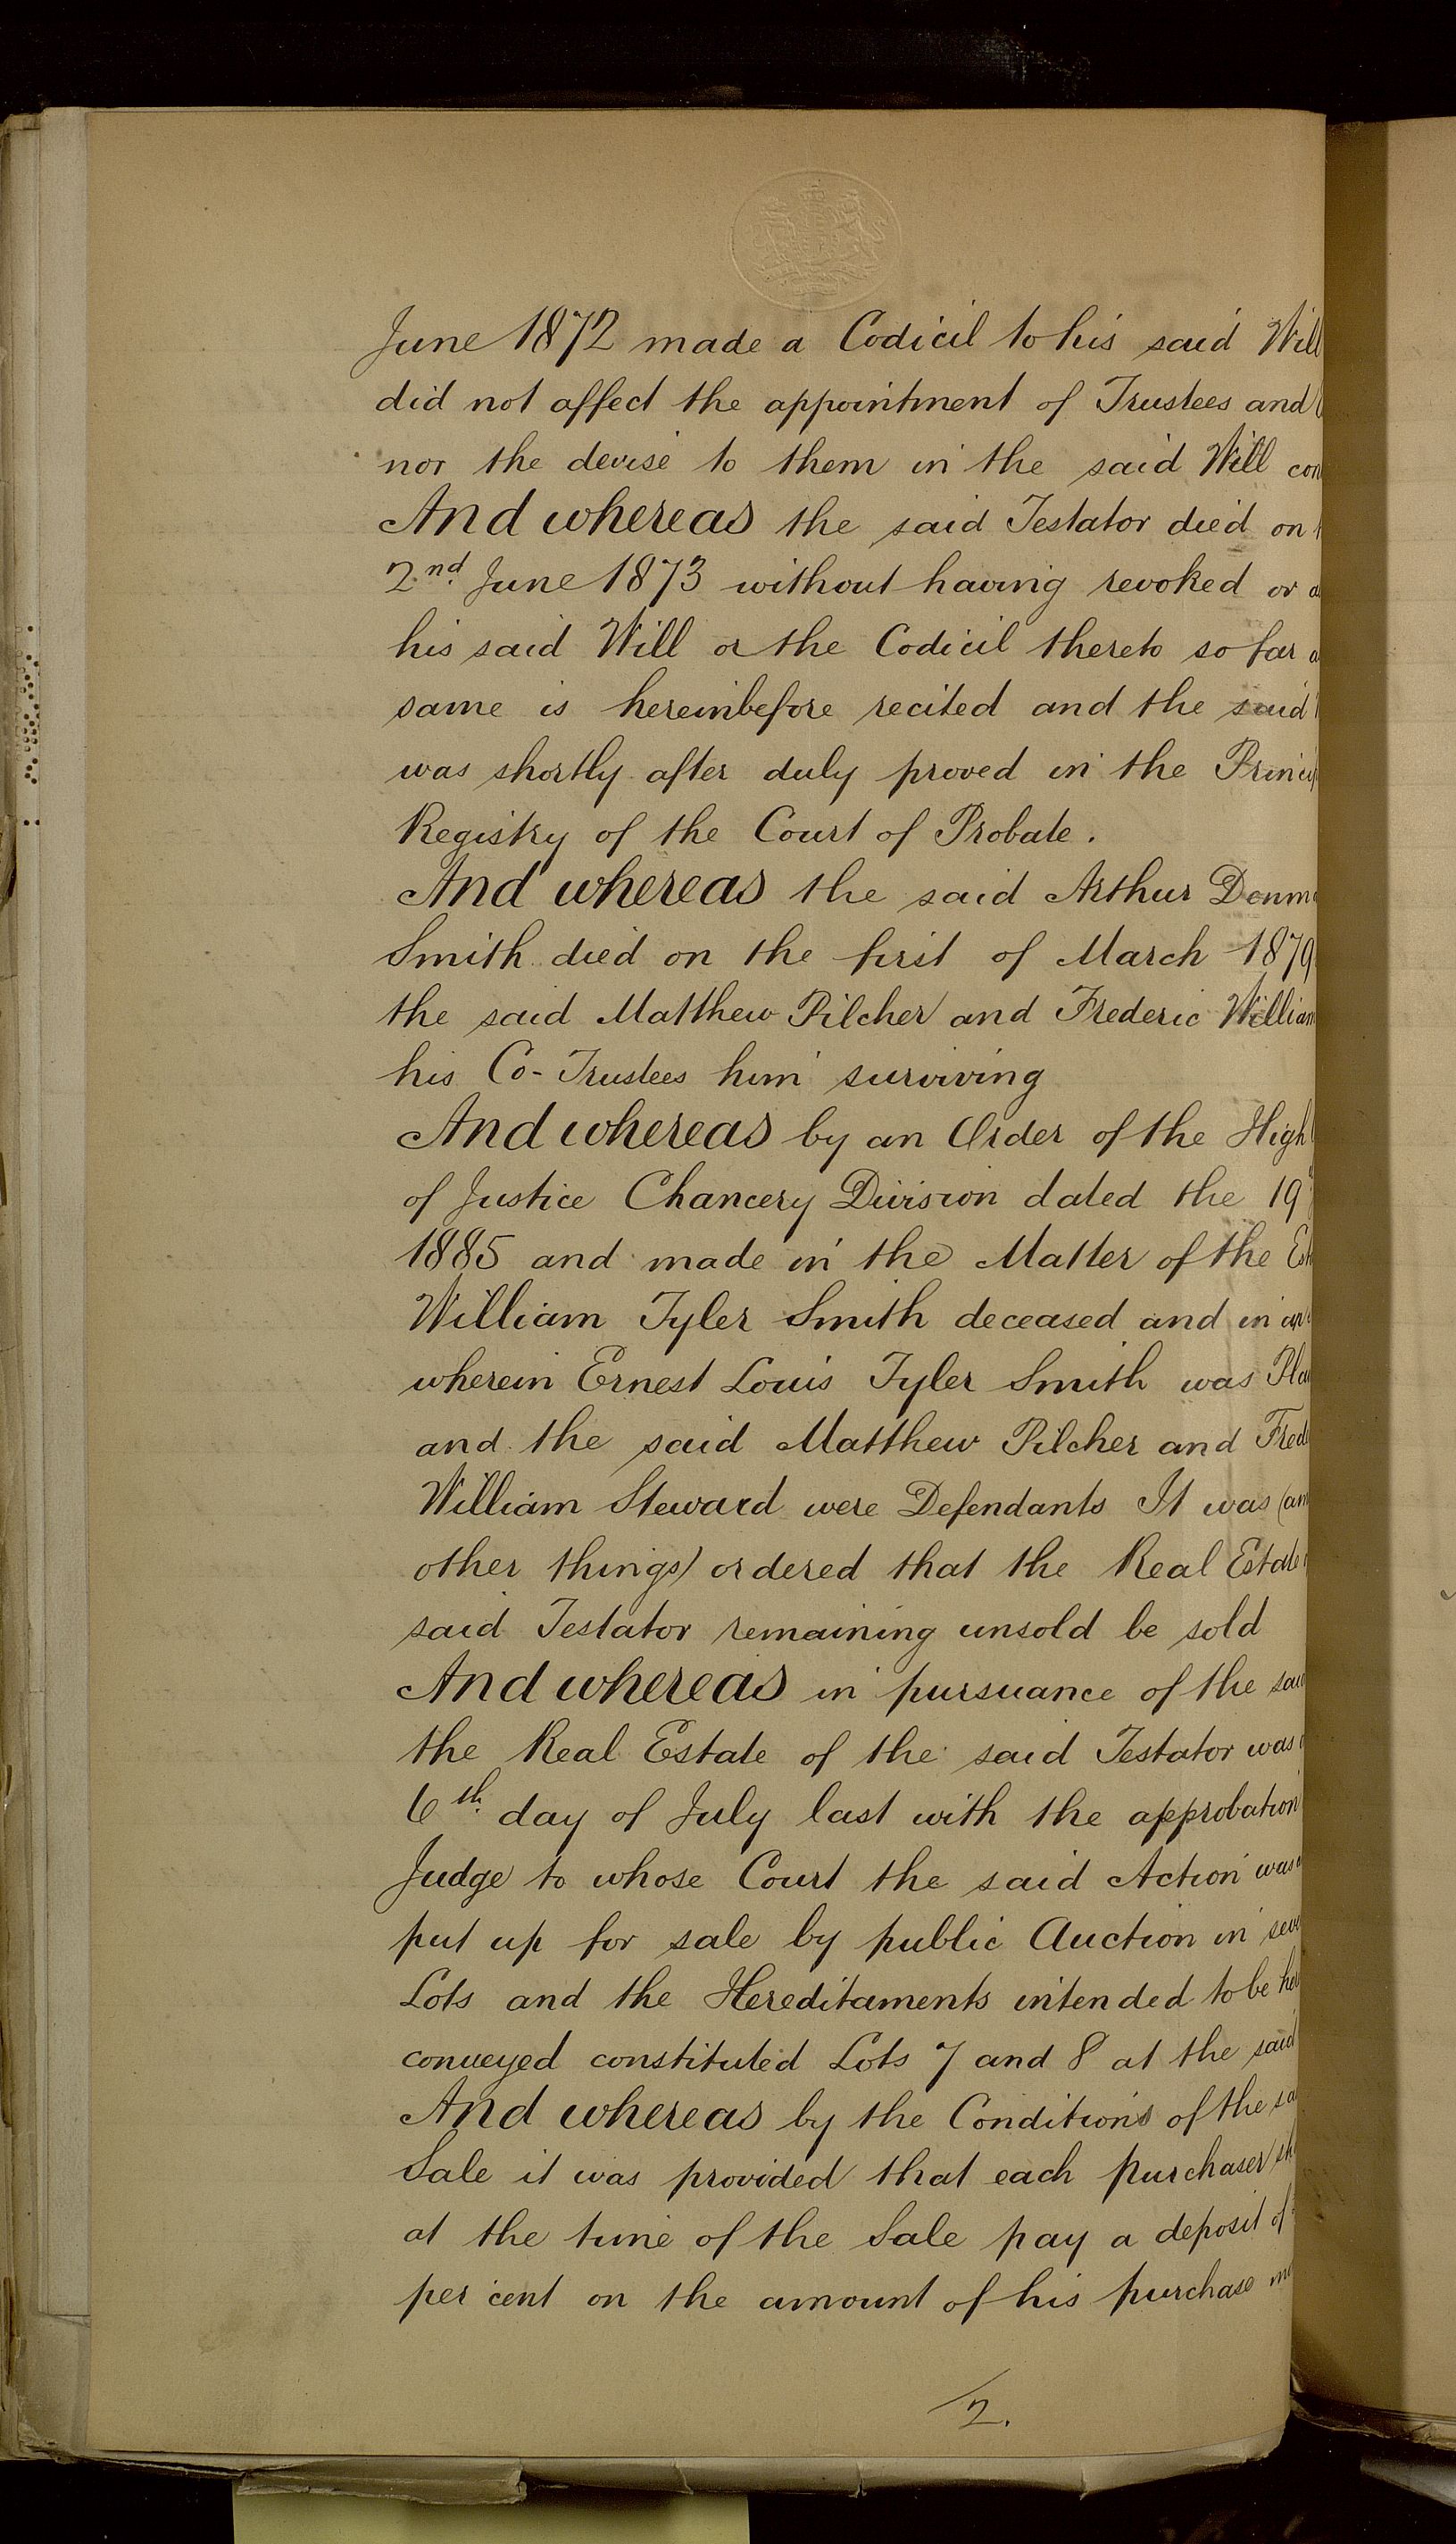 June 1872 made a Codicil to his said Will
did not affect the appointment of Trustees and
nor the devise to them in the said Will con
And whereas the said Testator died on
2nd June 1873 without having revoked or a
his said Will or the Codicil thereto so far a
same is hereinbefore recited and the said
was shortly after duly proved in the Princip
Registry of the Court of Probate.
And whereas the said Arthur Denma
Smith died on the first of March 1879
the said Matthew Pilcher and Frederic William
his Co-Trustees him surviving
And whereas by an Order of the High
of Justice Chancery Division dated the 19
1885 and made in the Matter of the Est
William Tyler Smith deceased and in an
wherein Ernest Louis Tyler Smith was Pla
and the said Matthew Pilcher and Fred
William Steward were Defendants It was (am
other things) ordered that the Real Estate
said Testator remaining unsold be sold
And whereas in pursuance of the said
the Real Estate of the said Testator was
6th day of July last with the approbation
Judge to whose Court the said Action was
put up for sale by public Auction in seve
Lots and the Hereditaments intended to be her
conveyed constituted Lots 7 and 8 at the said
And whereas by the Conditions of the sa
Sale it was provided that each purchaser sh
at the time of the Sale pay a deposit of
per cent on the amount of his purchase mo
2.